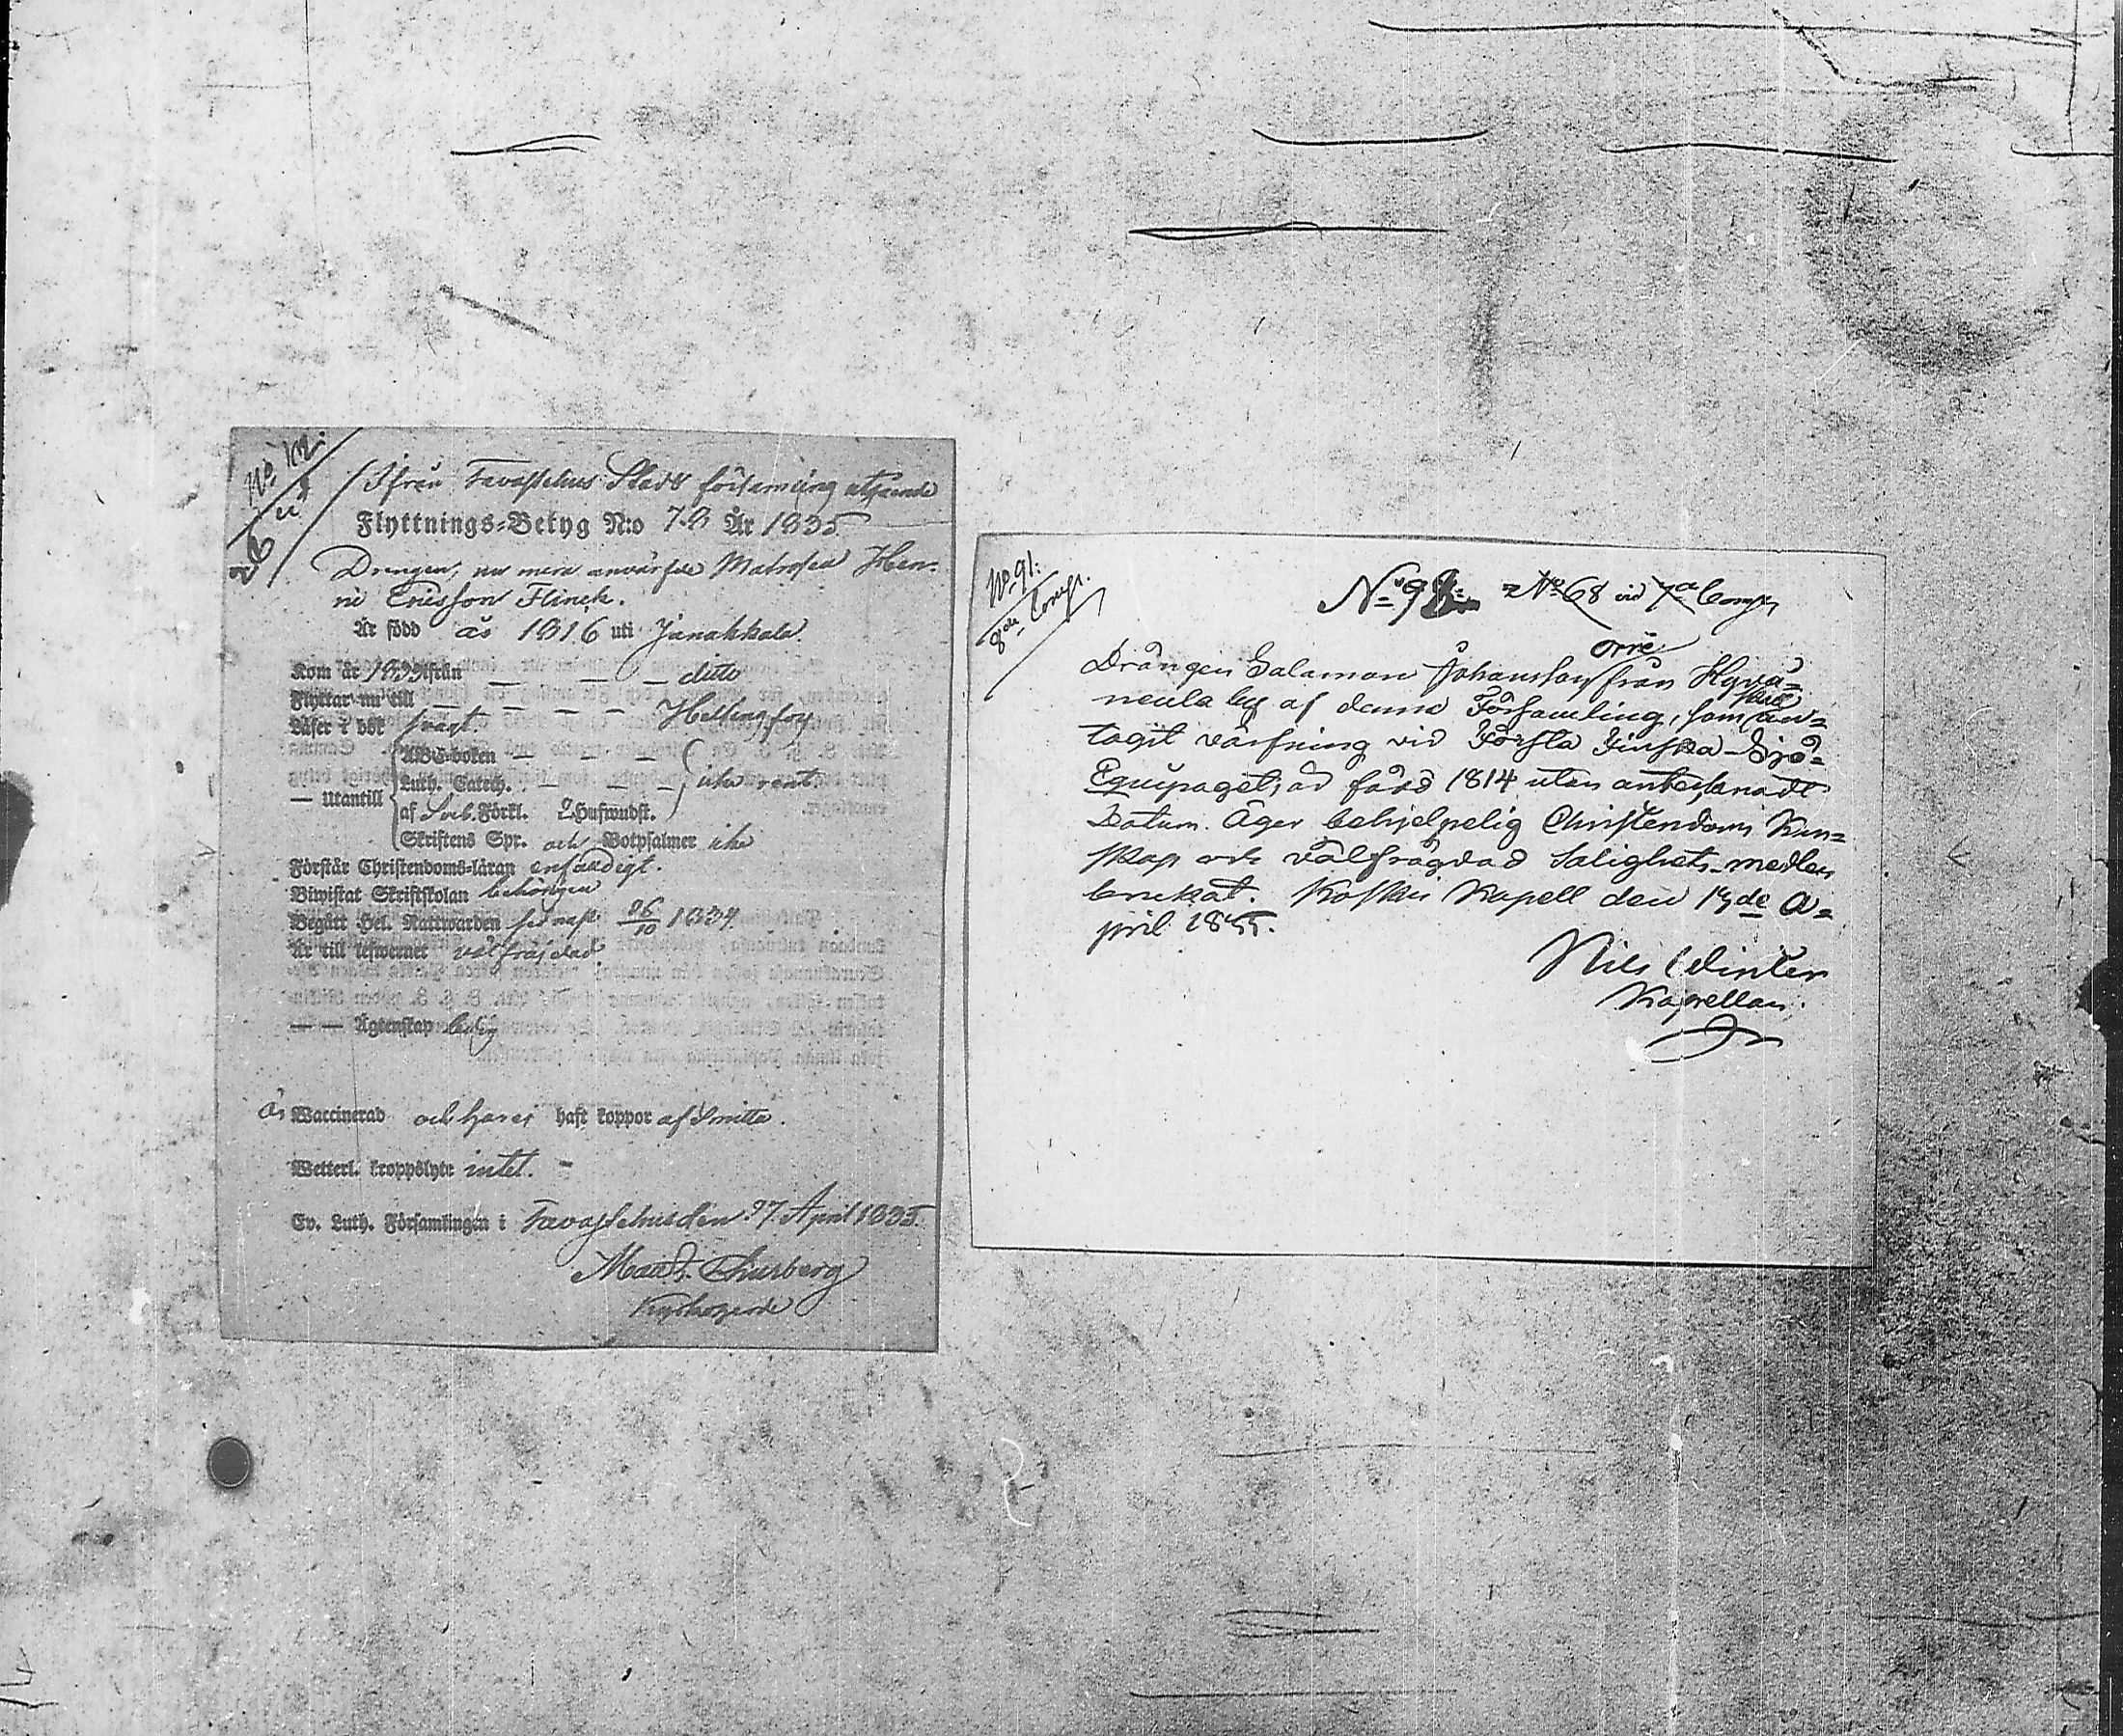 Ifrån Tavastehus Stads församling utgående
Flyttnings-Betyg N:o 78 År 1835.
Drengen, nu mera anvärfde Matrosen Hen-
ric Ericsson Flinck.
Är född år 1816 uti Janakkala.
Kom år 1833 ifrån — — — ditto
Flyttar nu till — — — — Helsingfors
Läser i bok svagt.
ABC-boken — — —
Luth. Catech. — — — icke rent
— Utantill
af Förkl. Hufwudst.
Skriftens Spr. och Botpsalmer icke
Förstår Christendoms-läran enfaldigt.
Biwistat Skriftskolan behörigen
Begått Hel. Nattwarden 26/10 1834.
Är till lefwernet välfräjdad
— — Ägtenskap ledig
är Waccinerad och haft koppor af Smitta.
Wetterl. kroppslyte intet. -
Ev. Luth. Församlingen i Tavastehus den 27 April 1835.
Churberg
Kyrkoherde
No 91:
8de Comp.
No 91 No 68 vid 7de Comp.
Orre
Drängen Salamon Johansson från Hyvä-
neula by af denna Församling, som skall an-
tagit värfning vid Första Finska Sjö-
Equipaget; är född 1814 utan antecknadt
Datum. Äger behjelpelig Christendoms Kun-
skap och välfrägdad Salighets-medlen
brukat. Koskis Kapell den 19de A-
pril 1835.
Nils Winter
Kapellan.